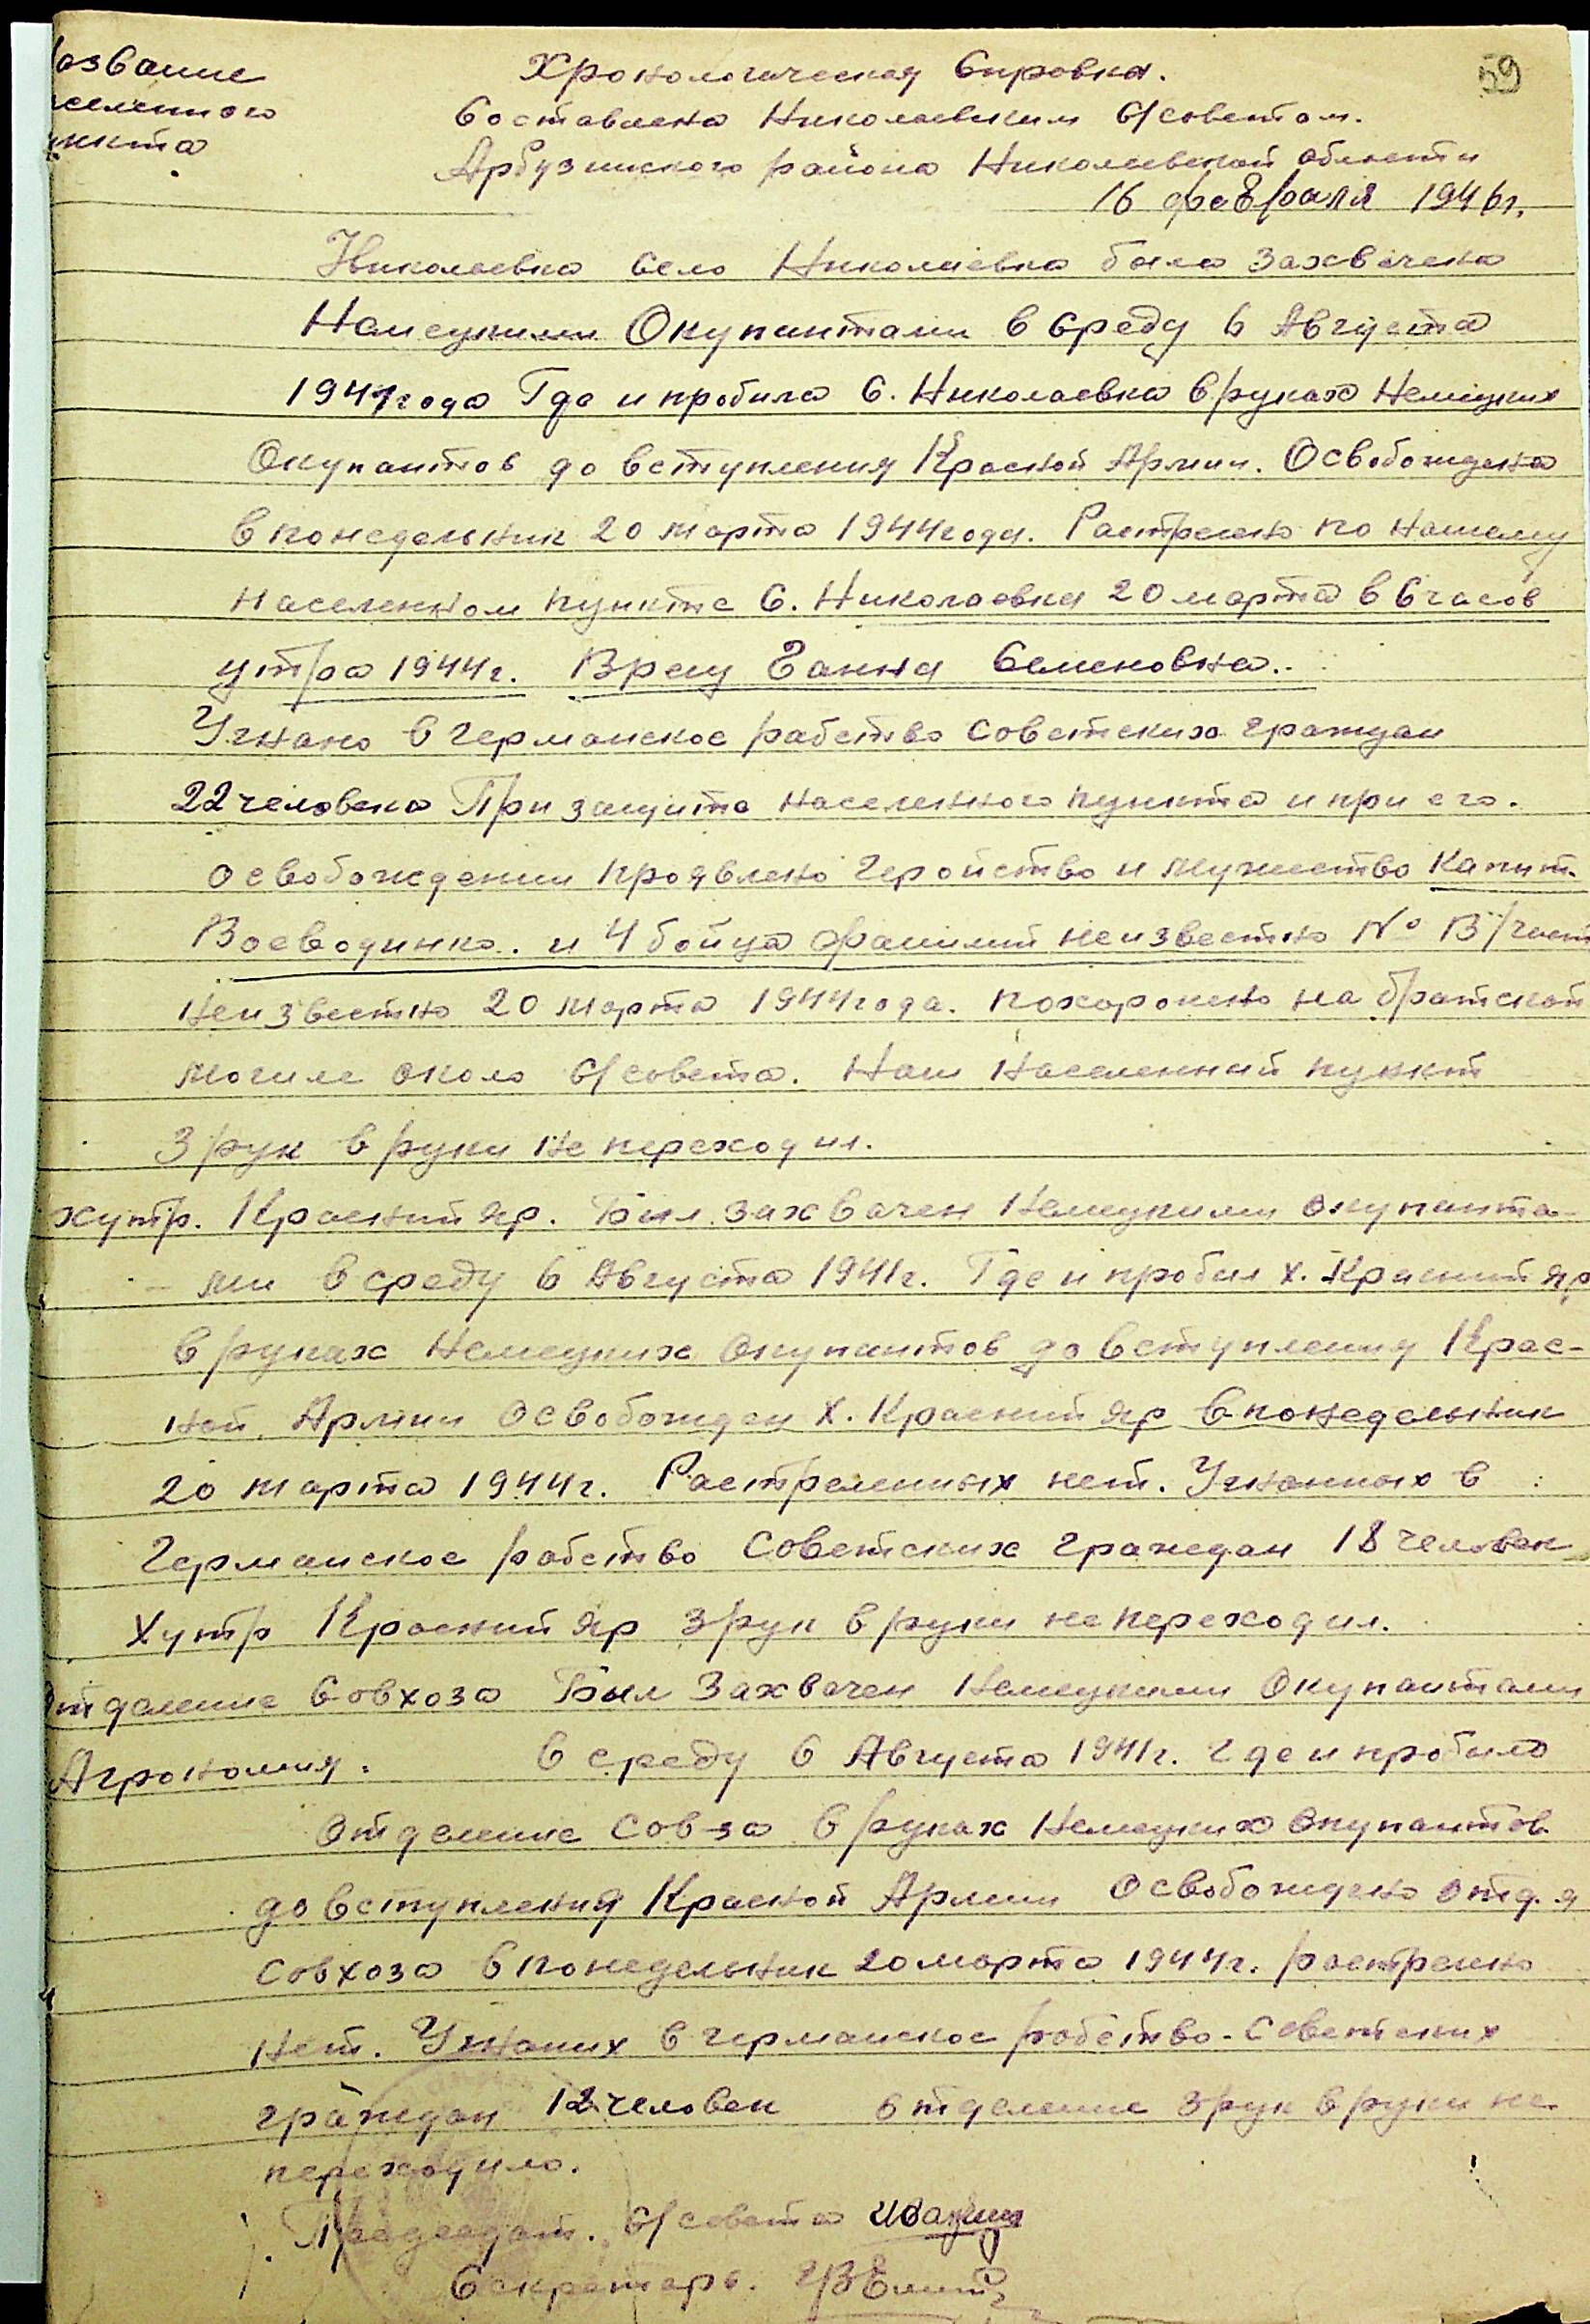 азвание
аселенного
ункта
59
Хронологическая Справка.
Составлена Николаевским С/советом.
Арбузинского района Николаевской области
16 февраля 1946г.
Николаевка Село Николаевка было захвачена
Немецкими Окупантами в Среду 6 Августа
1941года Где и пробила С. Николаевка в руках Немецких
Окупантов до вступления Красной Армии. Освобождена
в понедельник 20 марта 1944года. Растрелено по нашему
населенном пункте С. Николаевка 20 марта в 6 часов
утра 1944г. Ганна Семеновна..
Угнано в германское рабство Советских граждан
22 человека При защите населенного пункта и при его.
освобождении проявлено геройство и мужество Капит.
Воеводинко.. и 4 бойца фамилий неизвестно № В/част
неизвестно 20 марта 1944года. похоронено на братской
могиле около С/совета. Наш Населенний пункт
З рук в руки не переходил.
хутр. Красний яр. Бил захвачен Немецкими окупанта-
- ми в среду 6 Августа 1941г. Где и пробил х. Красний яр
в руках Немецких Окупантов до вступления Крас-
ной Армии Освобожден х. Красний яр в понедельник
20 марта 1944г. Растреленных нет. Угнанных в
Германское рабство Советских граждан 18 человек
Хутр Красний яр З рук в руки не переходил.
тделение Совхоза Был Захвачен Немецкими Окупантами
Агрономия. в среду 6 Августа 1941г. где и пробило
Отделение Сов-за в руках Немецких Окупантов
до вступления Красной Армии Освобождено отд. я
Совхоза в понедельник 20 марта 1944г. растрелено
нет. Угнаних в германское рабство - Советских
граждан 12 человек отделение З рук в руки не.
переходило.
Председат. С/совета
Секретарь.